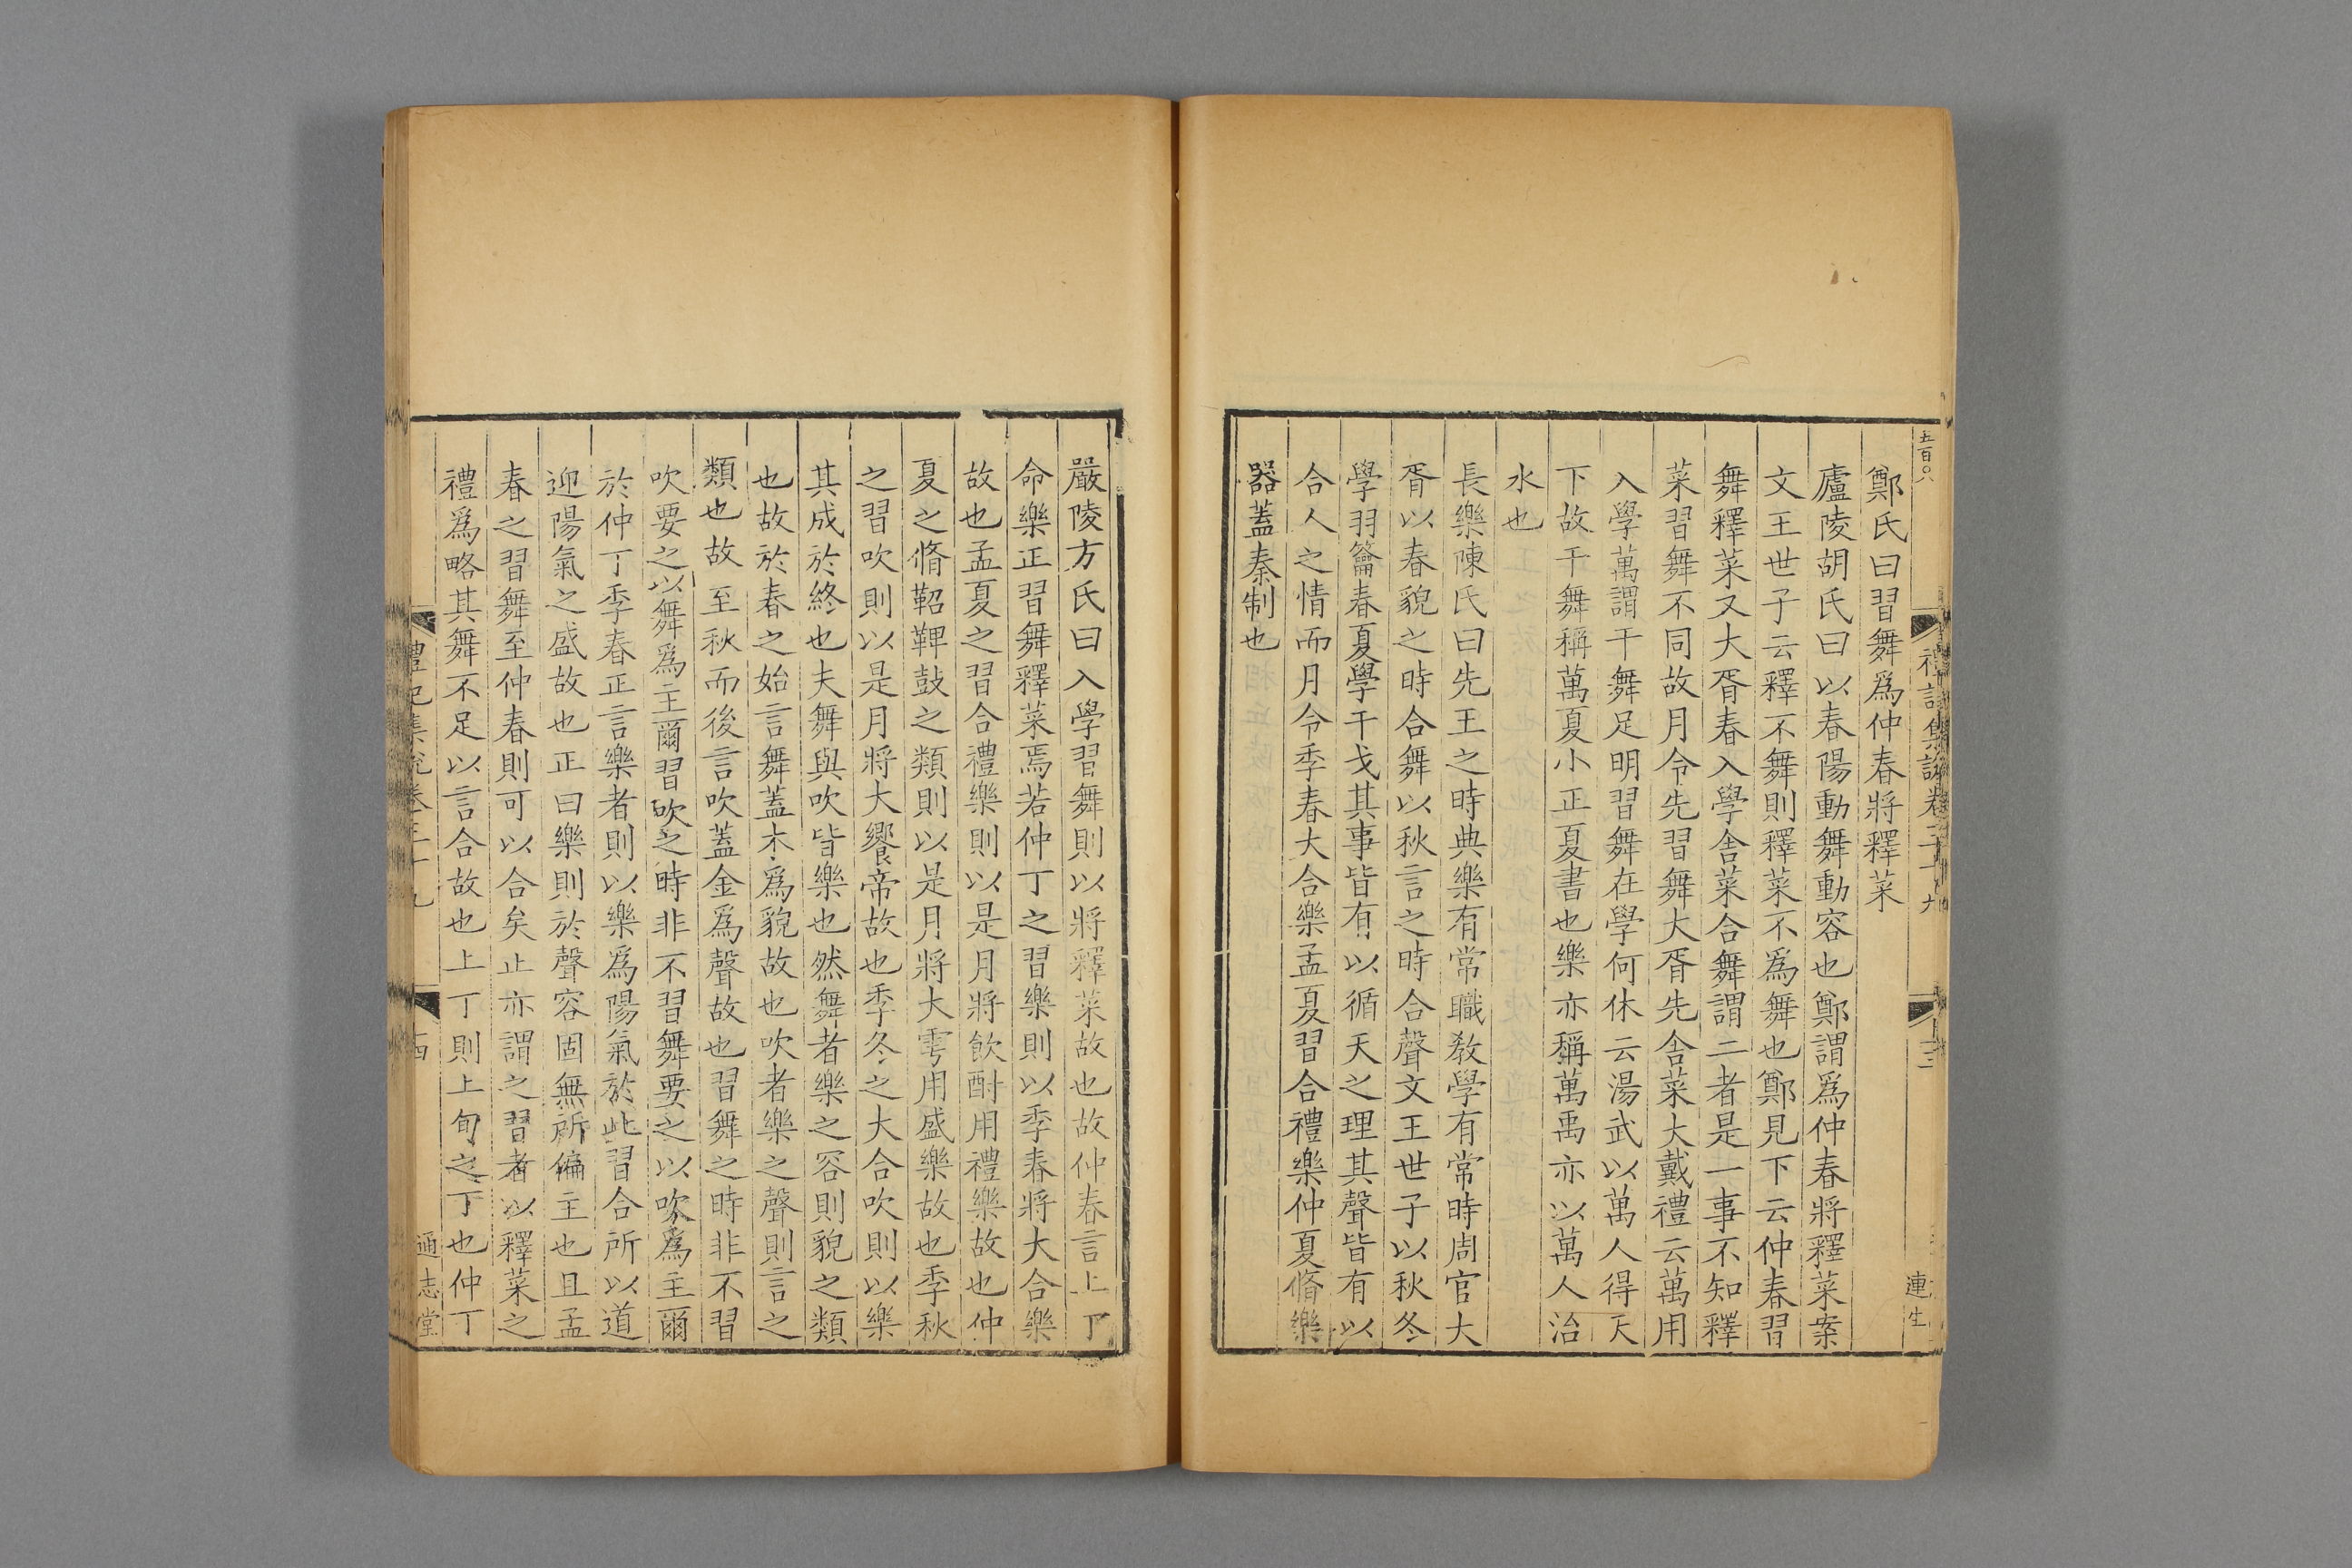 五百〇
禮記集說卷三十九
十三
連生
鄭氏曰習舞爲仲春將釋菜
廬陵胡氏曰以春陽動舞動容也鄭謂爲仲春將釋菜案
文王世子云釋不舞則釋菜不爲舞也鄭見下云仲春習
舞釋菜又大胥春入學舎菜合舞謂二者是一事不知釋
菜習舞不同故月令先習舞大胥先舎菜大戴禮云萬用
入學萬謂干舞足明習舞在學何休云湯武以萬人得天
下故干舞稱萬夏小正夏書也樂亦稱萬禹亦以萬人治
水也
長樂陳氏曰先王之時典樂有常職敎學有常時周官大
胥以春貌之時合舞以秋言之時合聲文王世子以秋冬
學羽籥春夏學干戈其事皆有以循天之理其聲皆有以
合人之情而月令季春大合樂孟夏習合禮樂仲夏脩樂
器蓋秦制也
嚴陵方氏曰入學習舞則以將釋菜故也故仲春言上丁
命樂正習舞釋菜焉若仲丁之習樂則以季春將大合樂
故也孟夏之習合禮樂則以是月將飲酎用禮樂故也仲
夏之脩鞀鞞鼓之類則以是月將大雩用盛樂故也季秋
之習吹則以是月將大饗帝故也季冬之大合吹則以樂
其成於終也夫舞與吹皆樂也然舞者樂之容則貌之類
也故於春之始言舞蓋木爲貌故也吹者樂之聲則言之
類也故至秋而後言吹蓋金爲聲故也習舞之時非不習
吹要之以舞爲主爾習吹之時非不習舞要之以吹爲主爾
於仲丁季春正言樂者則以樂爲陽氣於此習合所以道
迎陽氣之盛故也正曰樂則於聲容固無所偏主也且孟
春之習舞至仲春則可以合矣止亦謂之習者以釋菜之
禮爲略其舞不足以言合故也上丁則上旬之丁也仲丁
禮記集說卷三十九
十四
通志堂